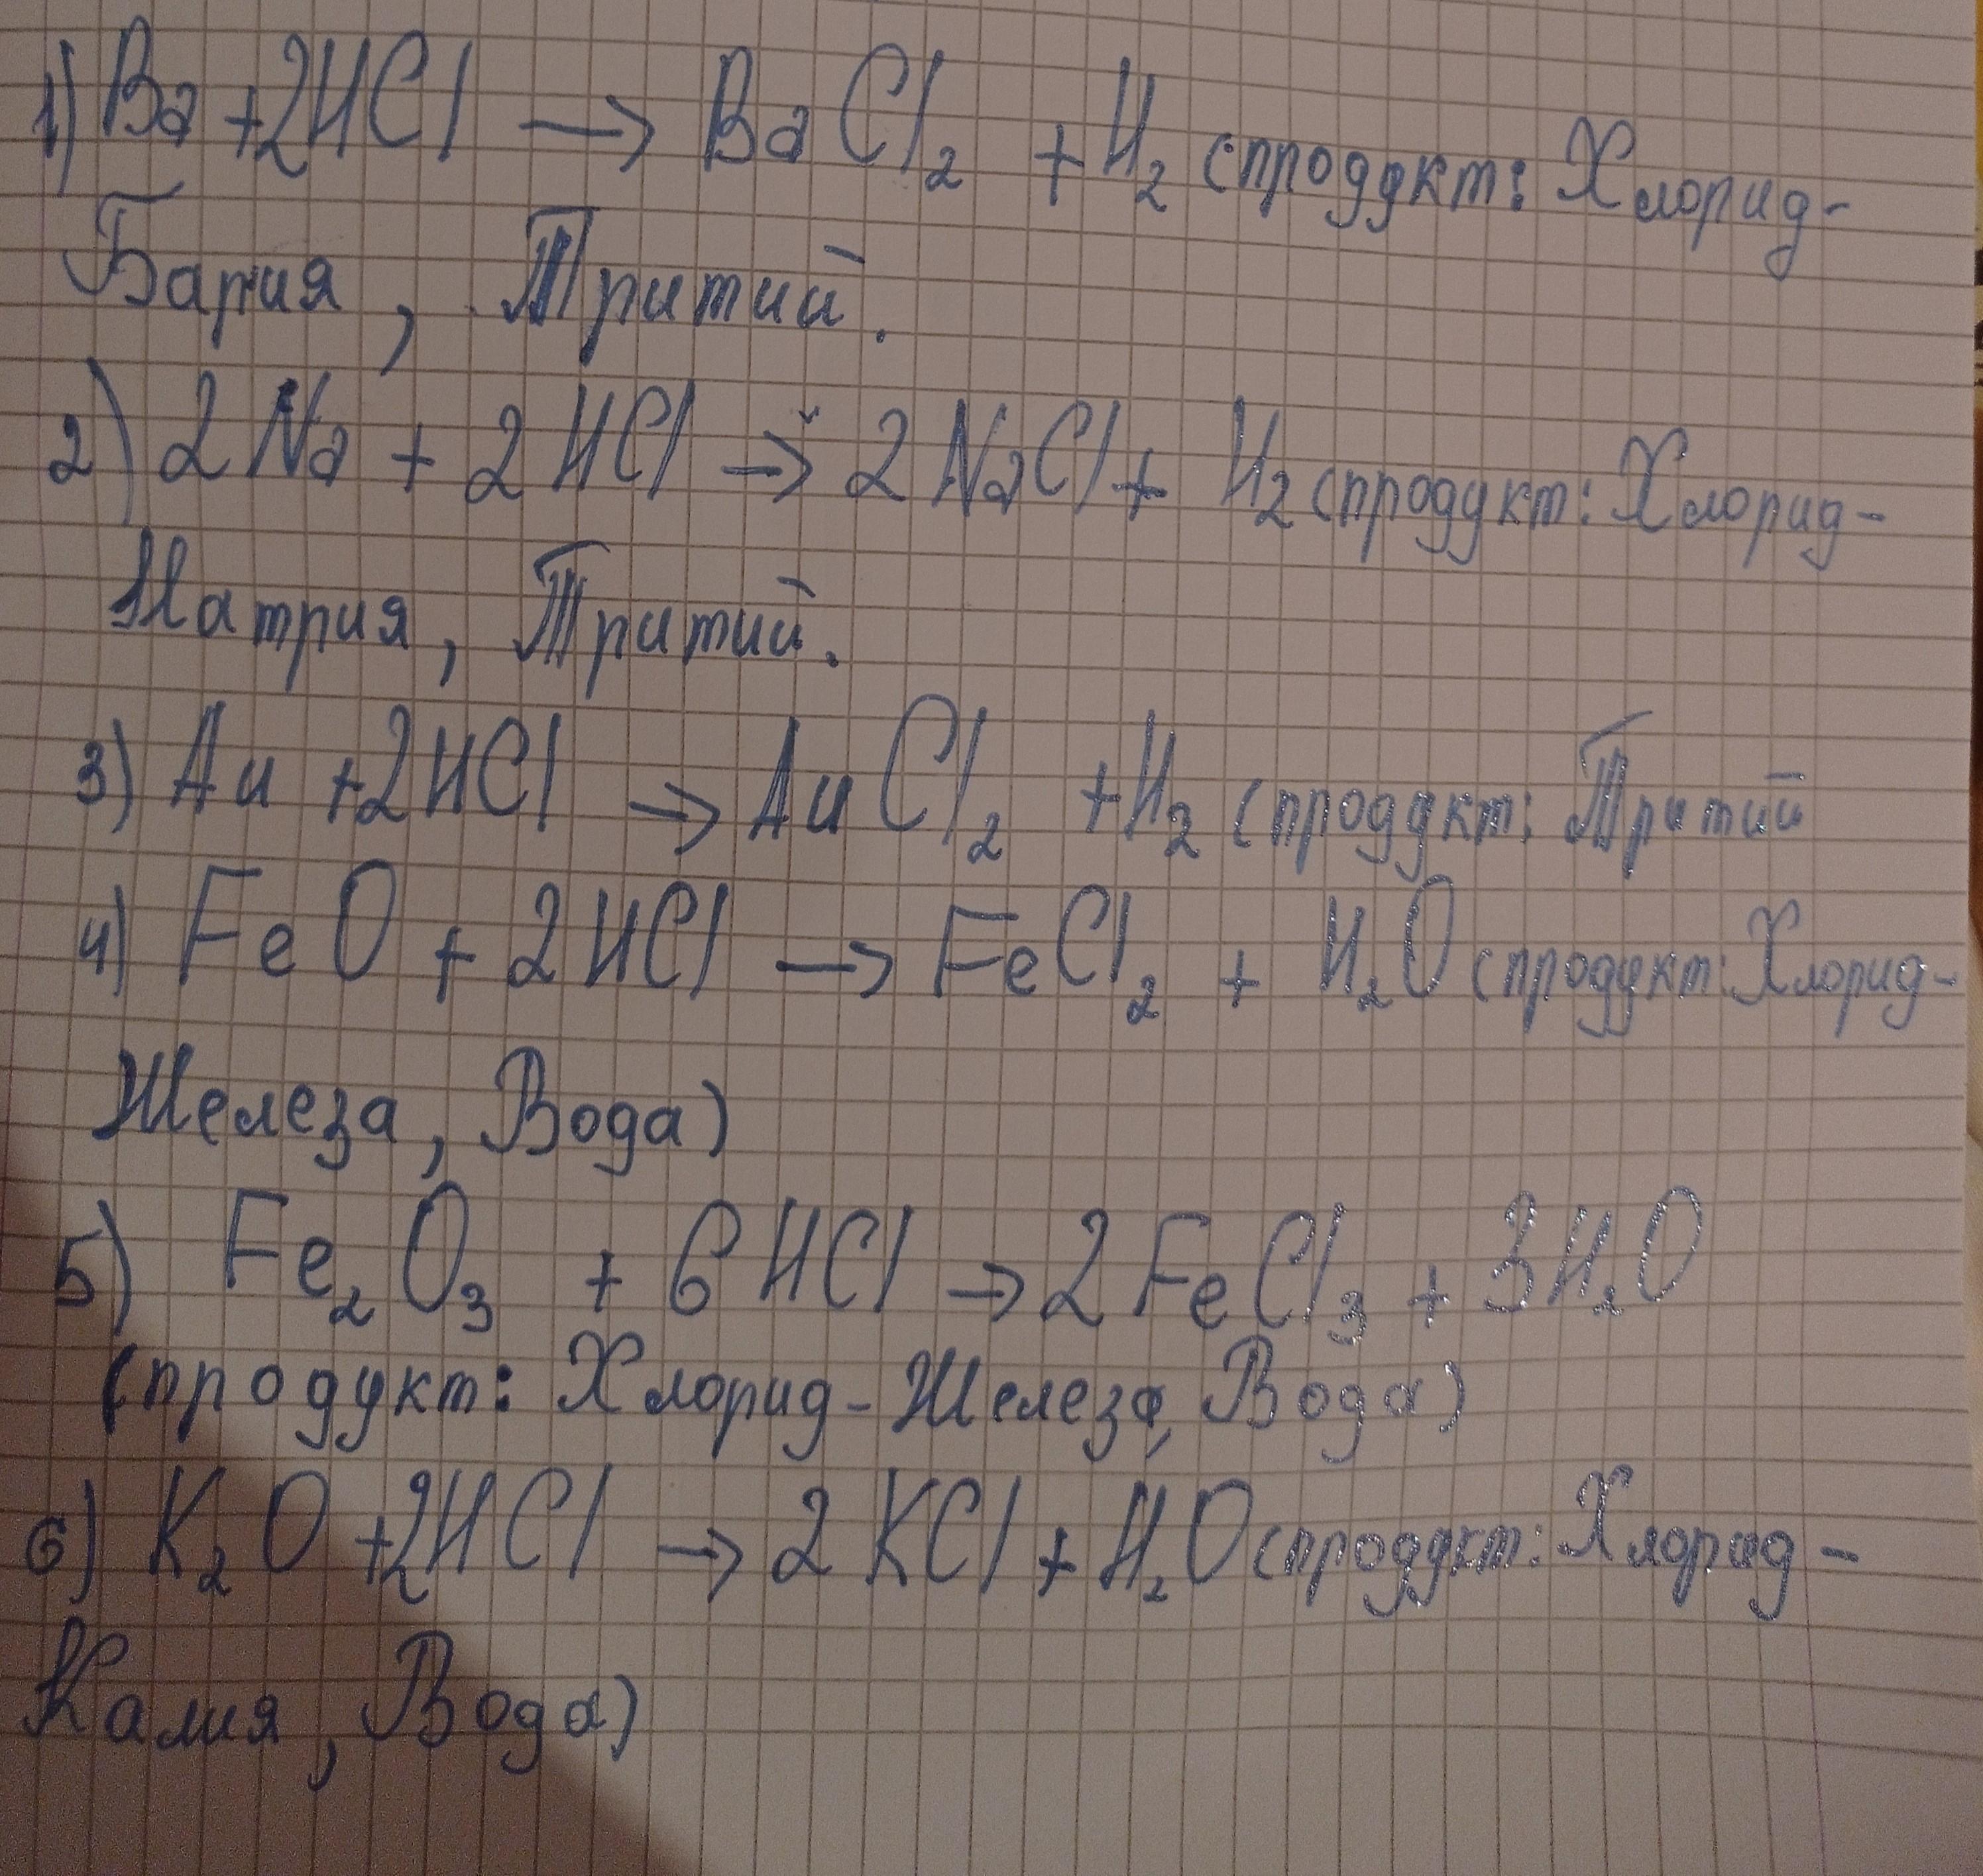 1) Ba + 2HCl → BaCl₂ + H₂ (продукт: Хлорид-
Бария, Тритий.
2) 2Na + 2HCl → 2NaCl + H₂ (продукт: Хлорид-
Натрия, Тритий.
3) Au + 2HCl → AuCl₂ + H₂ (продукт: Тритий
4) FeO + 2HCl → FeCl₂ + H₂O (продукт: Хлорид-
Железа, Вода)
5) Fe₂O₃ + 6HCl → 2FeCl₃ + 3H₂O
(продукт: Хлорид-Железа, Вода)
6) K₂O + 2HCl → 2KCl + H₂O (продукт: Хлорид-
Калия, Вода)